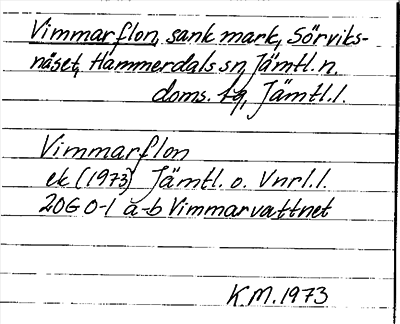 Vimmarflon, sank mark, Sörviks-
näset, Hammerdals sn, Jämtl. n.
doms. tg, Jämtl. l.
Vimmarflon
ek (1973) Jämtl. o. Vnrl. l.
20G 0-1 a-b Vimmarvattnet
K.M. 1973